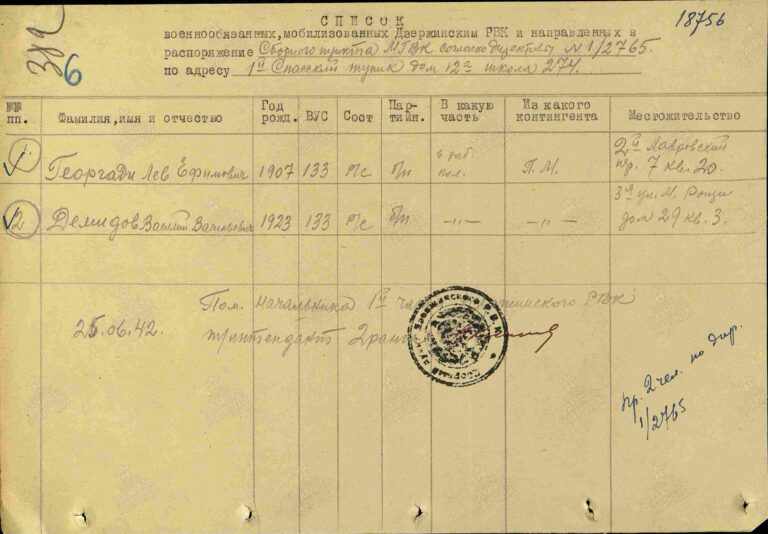 18756
382
6
СПИСОК
военнообязанных, мобилизованных Дзержинским РВК и направленных в
распоряжение Сборного пункта МГВК согласно директивы N 1/2765.
по адресу 1й Спасский тупик дом 12а школа 274.
№№ пп. Фамилия, имя и отчество Год рожд. ВУС Сост Пар-тийн. В какую часть Из какого контингента Местожительство
1 Георгади Лев Ефимович 1907 133 р/с б/п П.М. 2й Лавровский пр. 7 кв. 20.
2 Демидов Василий Васильевич 1923 133 р/с б/п —„— —„— 3я ул. М. Рощи дом 29 кв. 3.
Пом. начальника 1й РВК
25.06.42. 2 ранга
Сборный
пр. 2 чел. по дир.
1/2765